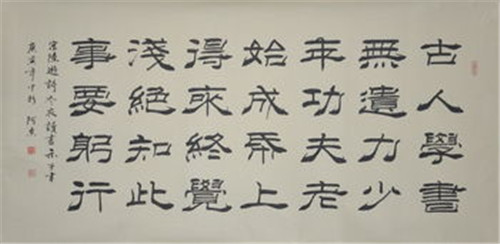 古人學書
無遺力少
年功夫老
始成帋上
得來終覺
淺絕知此
事要躬行
宋陸遊詩冬夜讀書示子聿
庚寅年